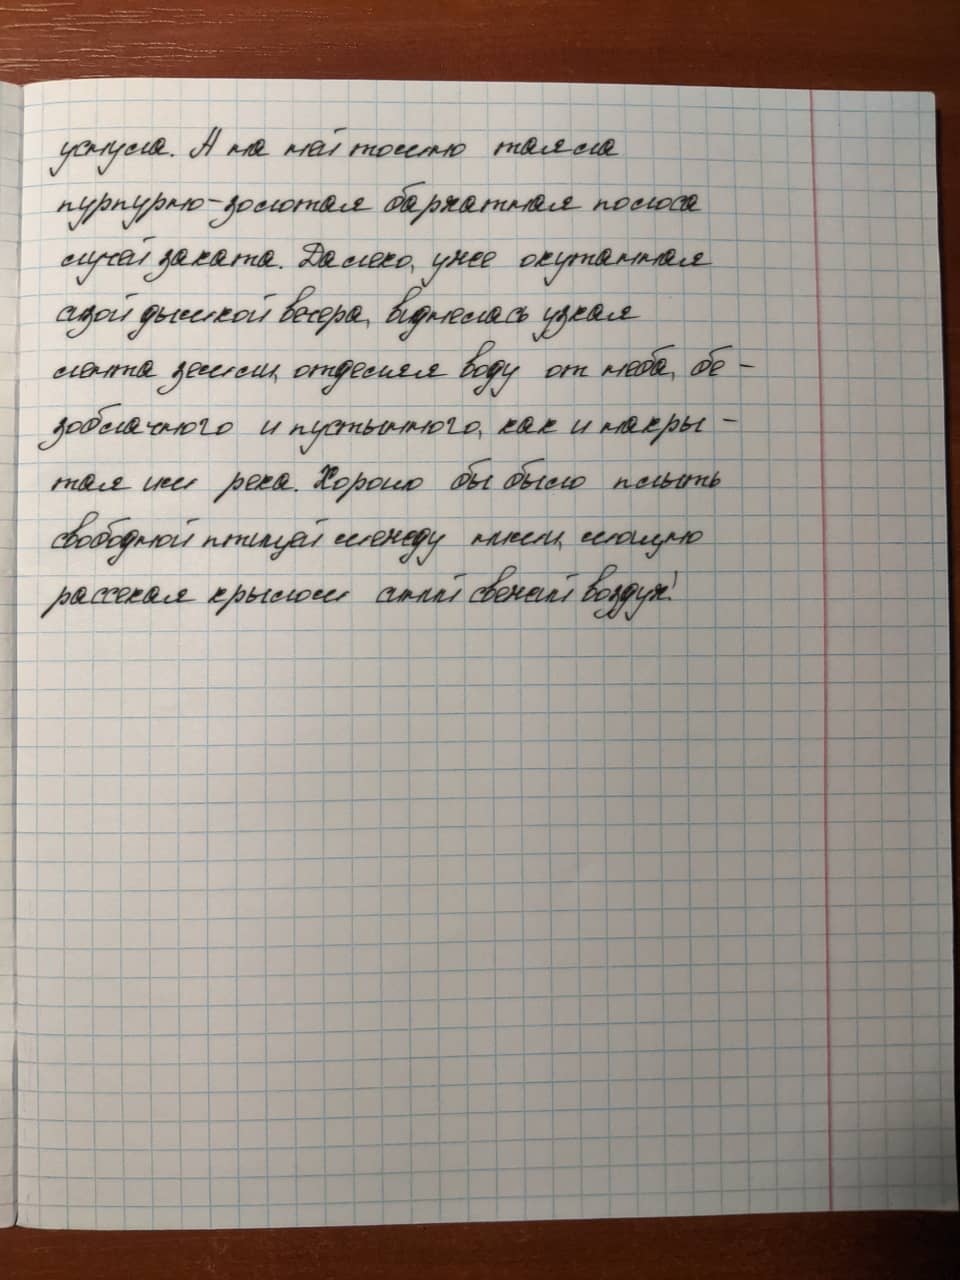 уснула. А на ней томно таяла
пурпурно-золотая бархатная полоса
лучей заката. Далеко, уже окутанная
сизой дымкой вечера, виднелась узкая
лента земли, отделяя воду от неба, бе-
зоблачного и пустынного, как и накры-
тая им река. Хорошо бы было плыть
свободной птицей между ними, мощно
рассекая крылом синий свежий воздух!